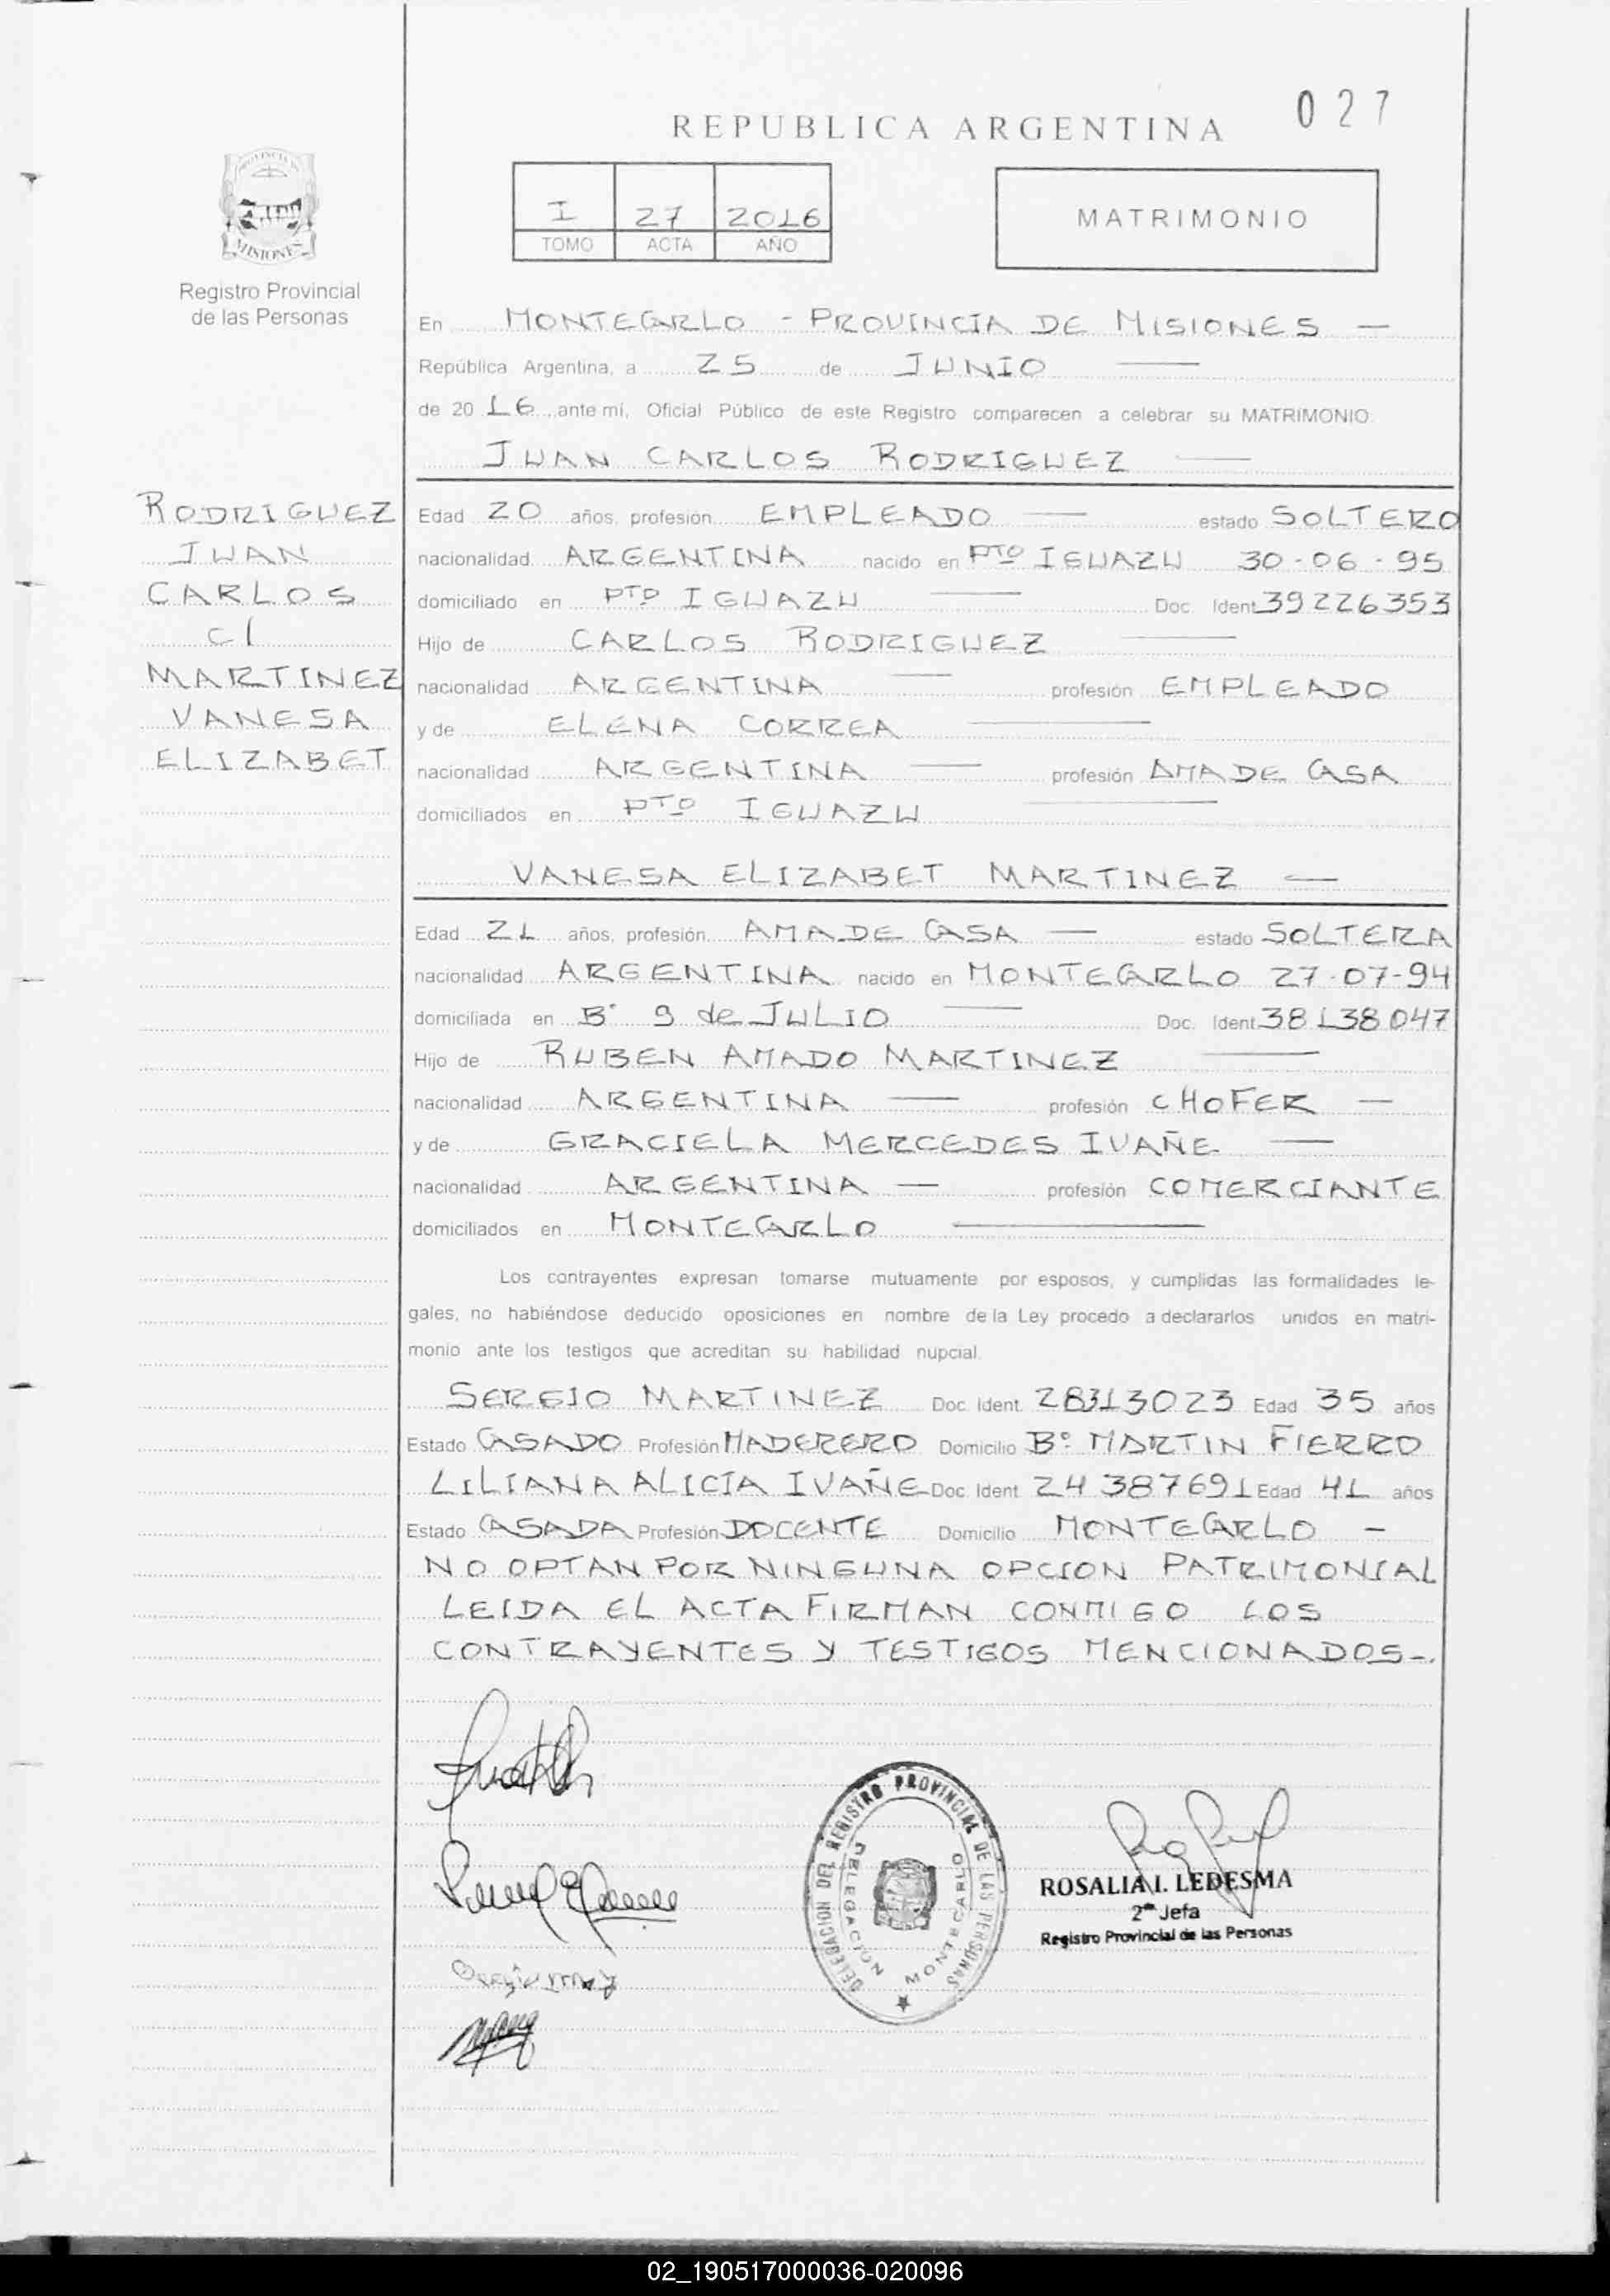 027
REPUBLICA ARGENTINA
PROVINCIA DE
MISIONES
Registro Provincial
de las Personas
I 27 2016
TOMO ACTA AÑO
MATRIMONIO
En MONTECARLO - PROVINCIA DE MISIONES —
República Argentina, a 25 de JUNIO —
de 20 16 ante mí, Oficial Público de este Registro comparecen a celebrar su MATRIMONIO.
JUAN CARLOS RODRIGUEZ —
RODRIGUEZ
JUAN
CARLOS
c/
MARTINEZ
VANESA
ELIZABET
Edad 20 años, profesión EMPLEADO — estado SOLTERO
nacionalidad ARGENTINA nacido en PTO IGUAZU 30-06-95
domiciliado en PTO IGUAZU — Doc. Ident. 39226353
Hijo de CARLOS RODRIGUEZ —
nacionalidad ARGENTINA — profesión EMPLEADO
y de ELENA CORREA —
nacionalidad ARGENTINA — profesión AMA DE CASA
domiciliados en PTO IGUAZU —
VANESA ELIZABET MARTINEZ —
Edad 21 años, profesión AMA DE CASA — estado SOLTERA
nacionalidad ARGENTINA nacido en MONTECARLO 27-07-94
domiciliada en B° 9 de JULIO — Doc. Ident. 38138047
Hijo de RUBEN AMADO MARTINEZ —
nacionalidad ARGENTINA — profesión CHOFER —
y de GRACIELA MERCEDES IVAÑE —
nacionalidad ARGENTINA — profesión COMERCIANTE
domiciliados en MONTECARLO —
Los contrayentes expresan tomarse mutuamente por esposos, y cumplidas las formalidades le-
gales, no habiéndose deducido oposiciones en nombre de la Ley procedo a declararlos unidos en matri-
monio ante los testigos que acreditan su habilidad nupcial.
SERGIO MARTINEZ Doc. Ident. 28313023 Edad 35 años
Estado CASADO Profesión MADERERO Domicilio B° MARTIN FIERRO
LILIANA ALICIA IVAÑE Doc. Ident. 24387691 Edad 41 años
Estado CASADA Profesión DOCENTE Domicilio MONTECARLO -
NO OPTAN POR NINGUNA OPCION PATRIMONIAL
LEIDA EL ACTA FIRMAN CONMIGO LOS
CONTRAYENTES Y TESTIGOS MENCIONADOS-.
DELEGACION DEL REGISTRO PROVINCIAL DE LAS PERSONAS
DELEGACIÓN MONTECARLO
ROSALIA I. LEDESMA
2da Jefa
Registro Provincial de las Personas
02_190517000036-020096